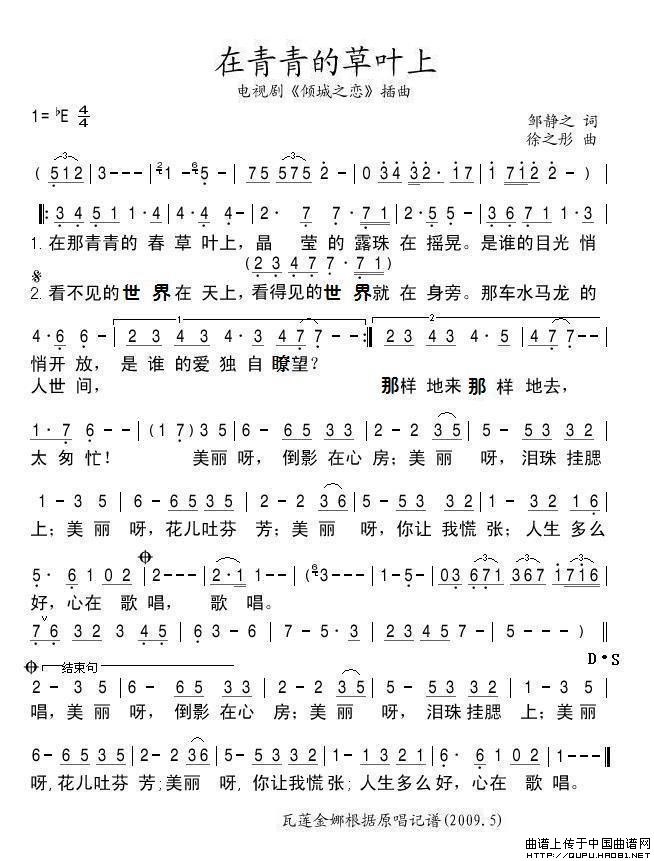 在青青的草叶上
电视剧《倾城之恋》插曲
1=♭E 4/4
邹静之 词
徐之彤 曲
(512 3--- 21 -65- 75 575 2-2 034 32·17 1712 2-)
3451 1·4 4·4 4- 2·7 7·71 2·55- 3671 1·4
1.在那青青的 春草叶上,晶 莹的露珠在摇晃。是谁的目光悄
(2347 7·71)
2.看不见的世界在天上,看得见的世界就在身旁。那车水马龙的
1 2
4·6 6- 23 43 3·4 477-- 23 43 4·5 477--
悄开放, 是谁的爱独自瞭望?
人世间, 那样地来那样地去,
1·7 6-- (17)35 6-65 33 2-235 3-65 33
太匆忙! 美丽呀,倒影在心房;美丽 呀,泪珠挂腮
1-35 6-6535 2-236 3-65 33 32 16
上;美丽 呀,花儿吐芬芳;美丽 呀,你让我慌张;人生多么
5·6102 2--- 2·11- 1--- (63--- 5--- 03671 367 1716
好,心在 歌唱, 歌唱。
76 32 3 45 63-6 7-5·3 2345 7- 5--- 5---)
结束句
D·S
2-35 6-65 33 2-235 3-65 33 1-35
唱,美丽 呀,倒影在心房;美丽 呀,泪珠挂腮 上;美丽
6-6535 2-236 3-6532 1-1321 6·102 1---
呀,花儿吐芬芳;美丽 呀,你让我慌张;人生多么好,心在 歌唱。
瓦莲金娜根据原唱记谱(2009.5)
曲谱上传于中国曲谱网
Http://QUPU.HAO81.NET